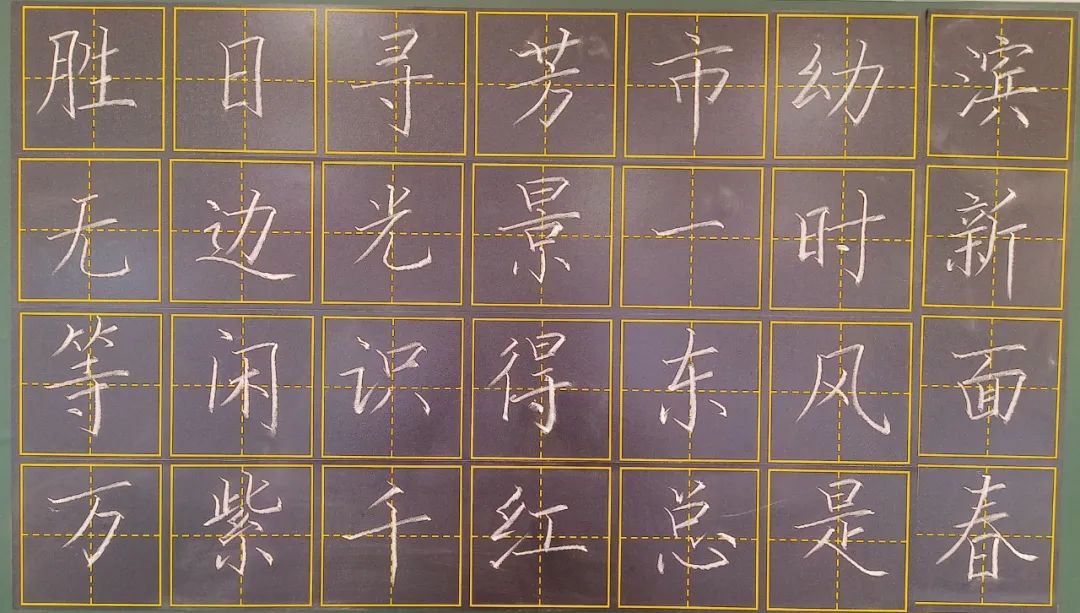 胜日寻芳市幼滨
无边光景一时新
等闲识得东风面
万紫千红总是春